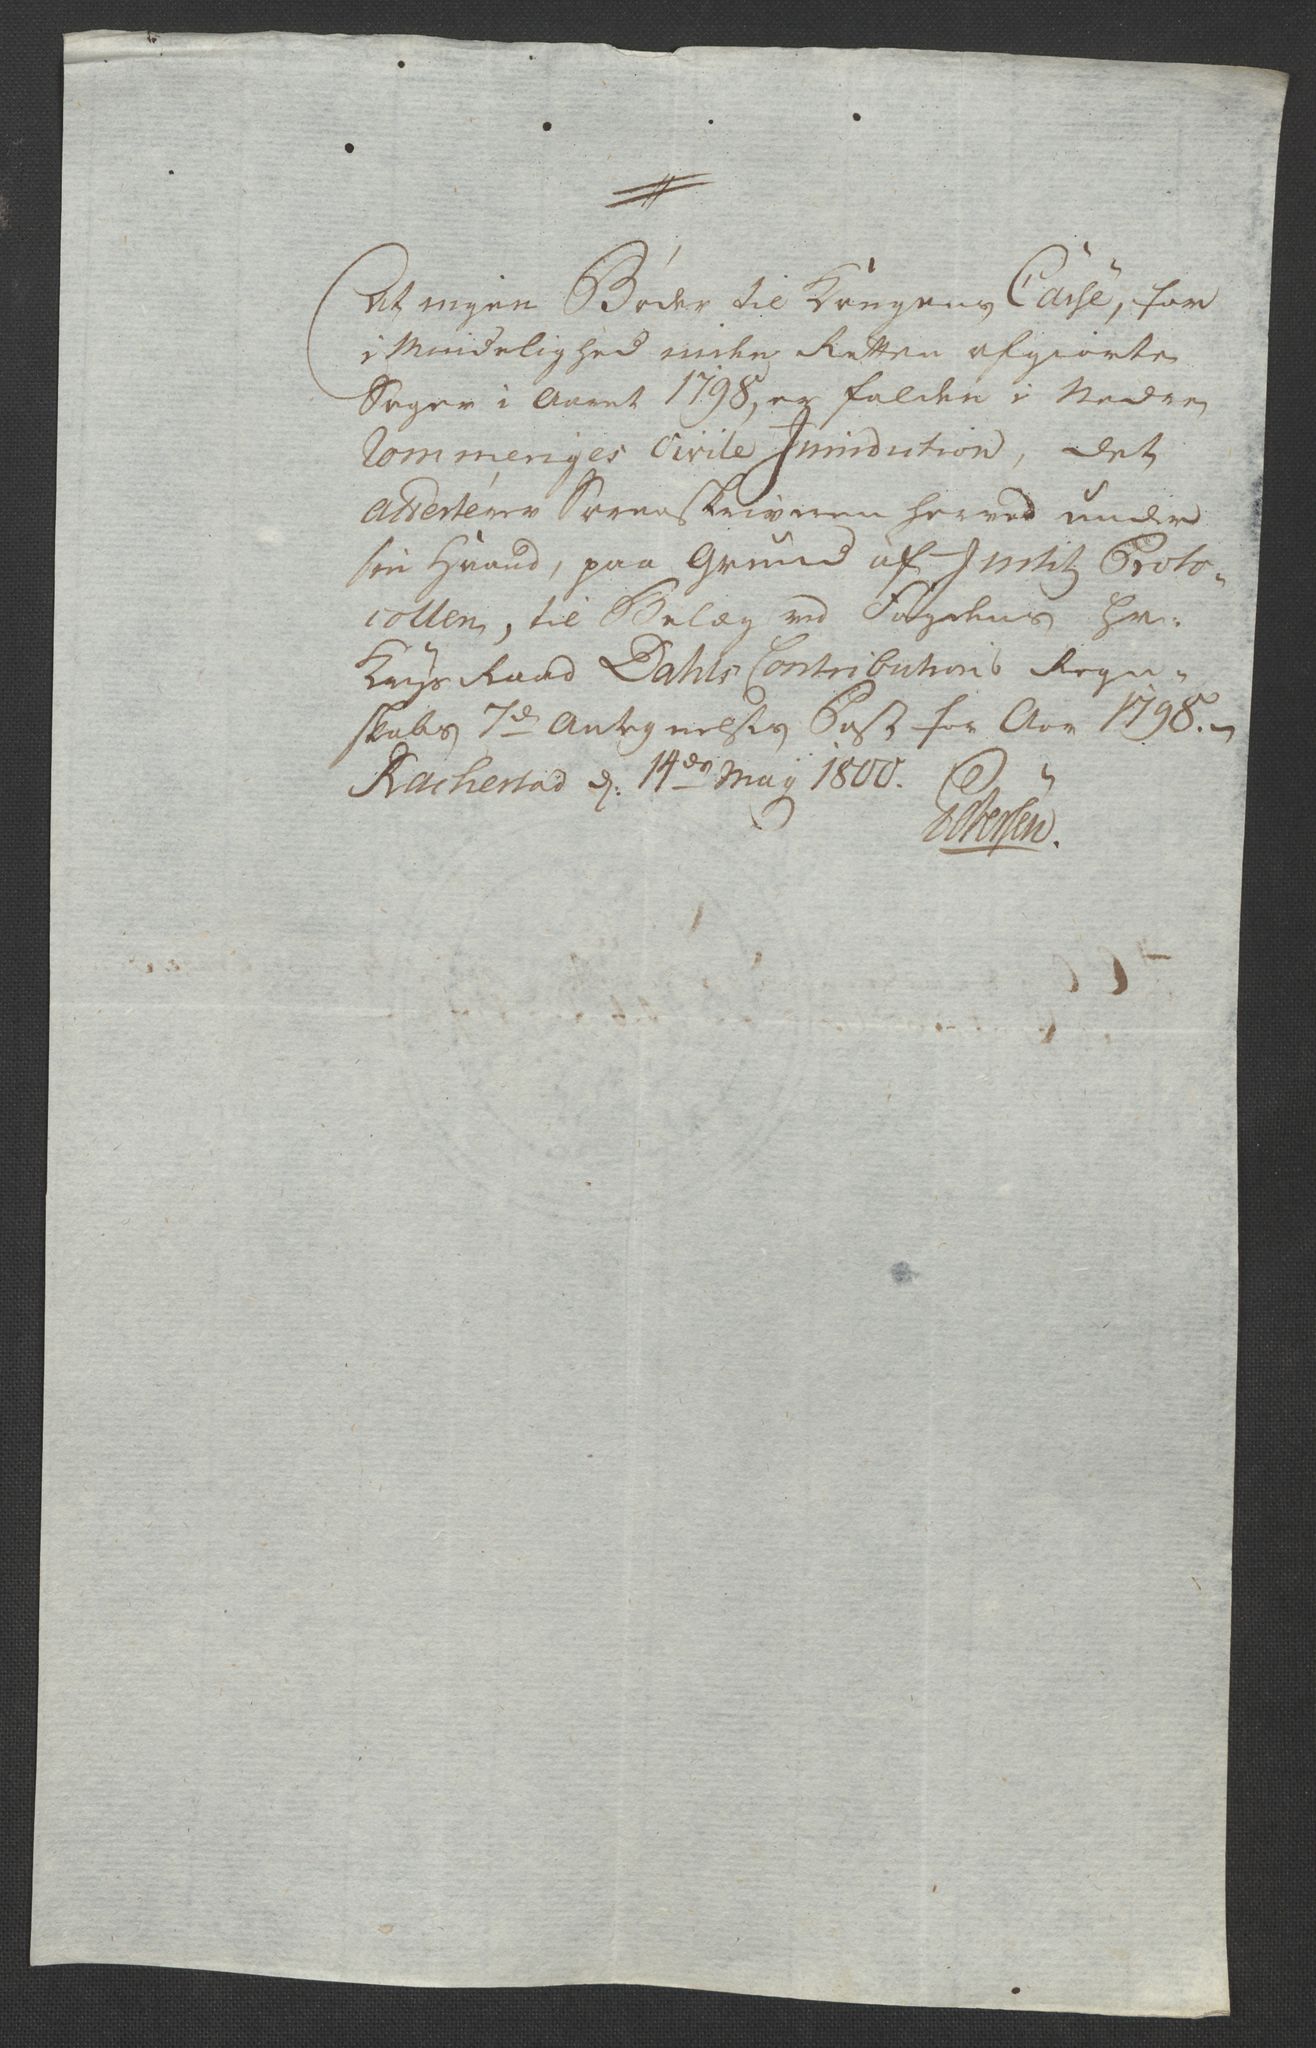 At ingen Bøder til Kongens Casse, for
i Mindelighed inden Retten afgiorte
Sager i Aaret 1798, er falden i Nedre
Rommeriges Civile Jurisdiction, det
attesterer Sorenskriveren herved under
sin Haand, paa Grund af Justitz Proto-
collen, til Belæg ved Fogdens Hr.
Krigs Raad Dahls Contributions Regn-
skabs 7de Antegnelses Post for Aar 1798.
Rachestad d: 14de May 1800.